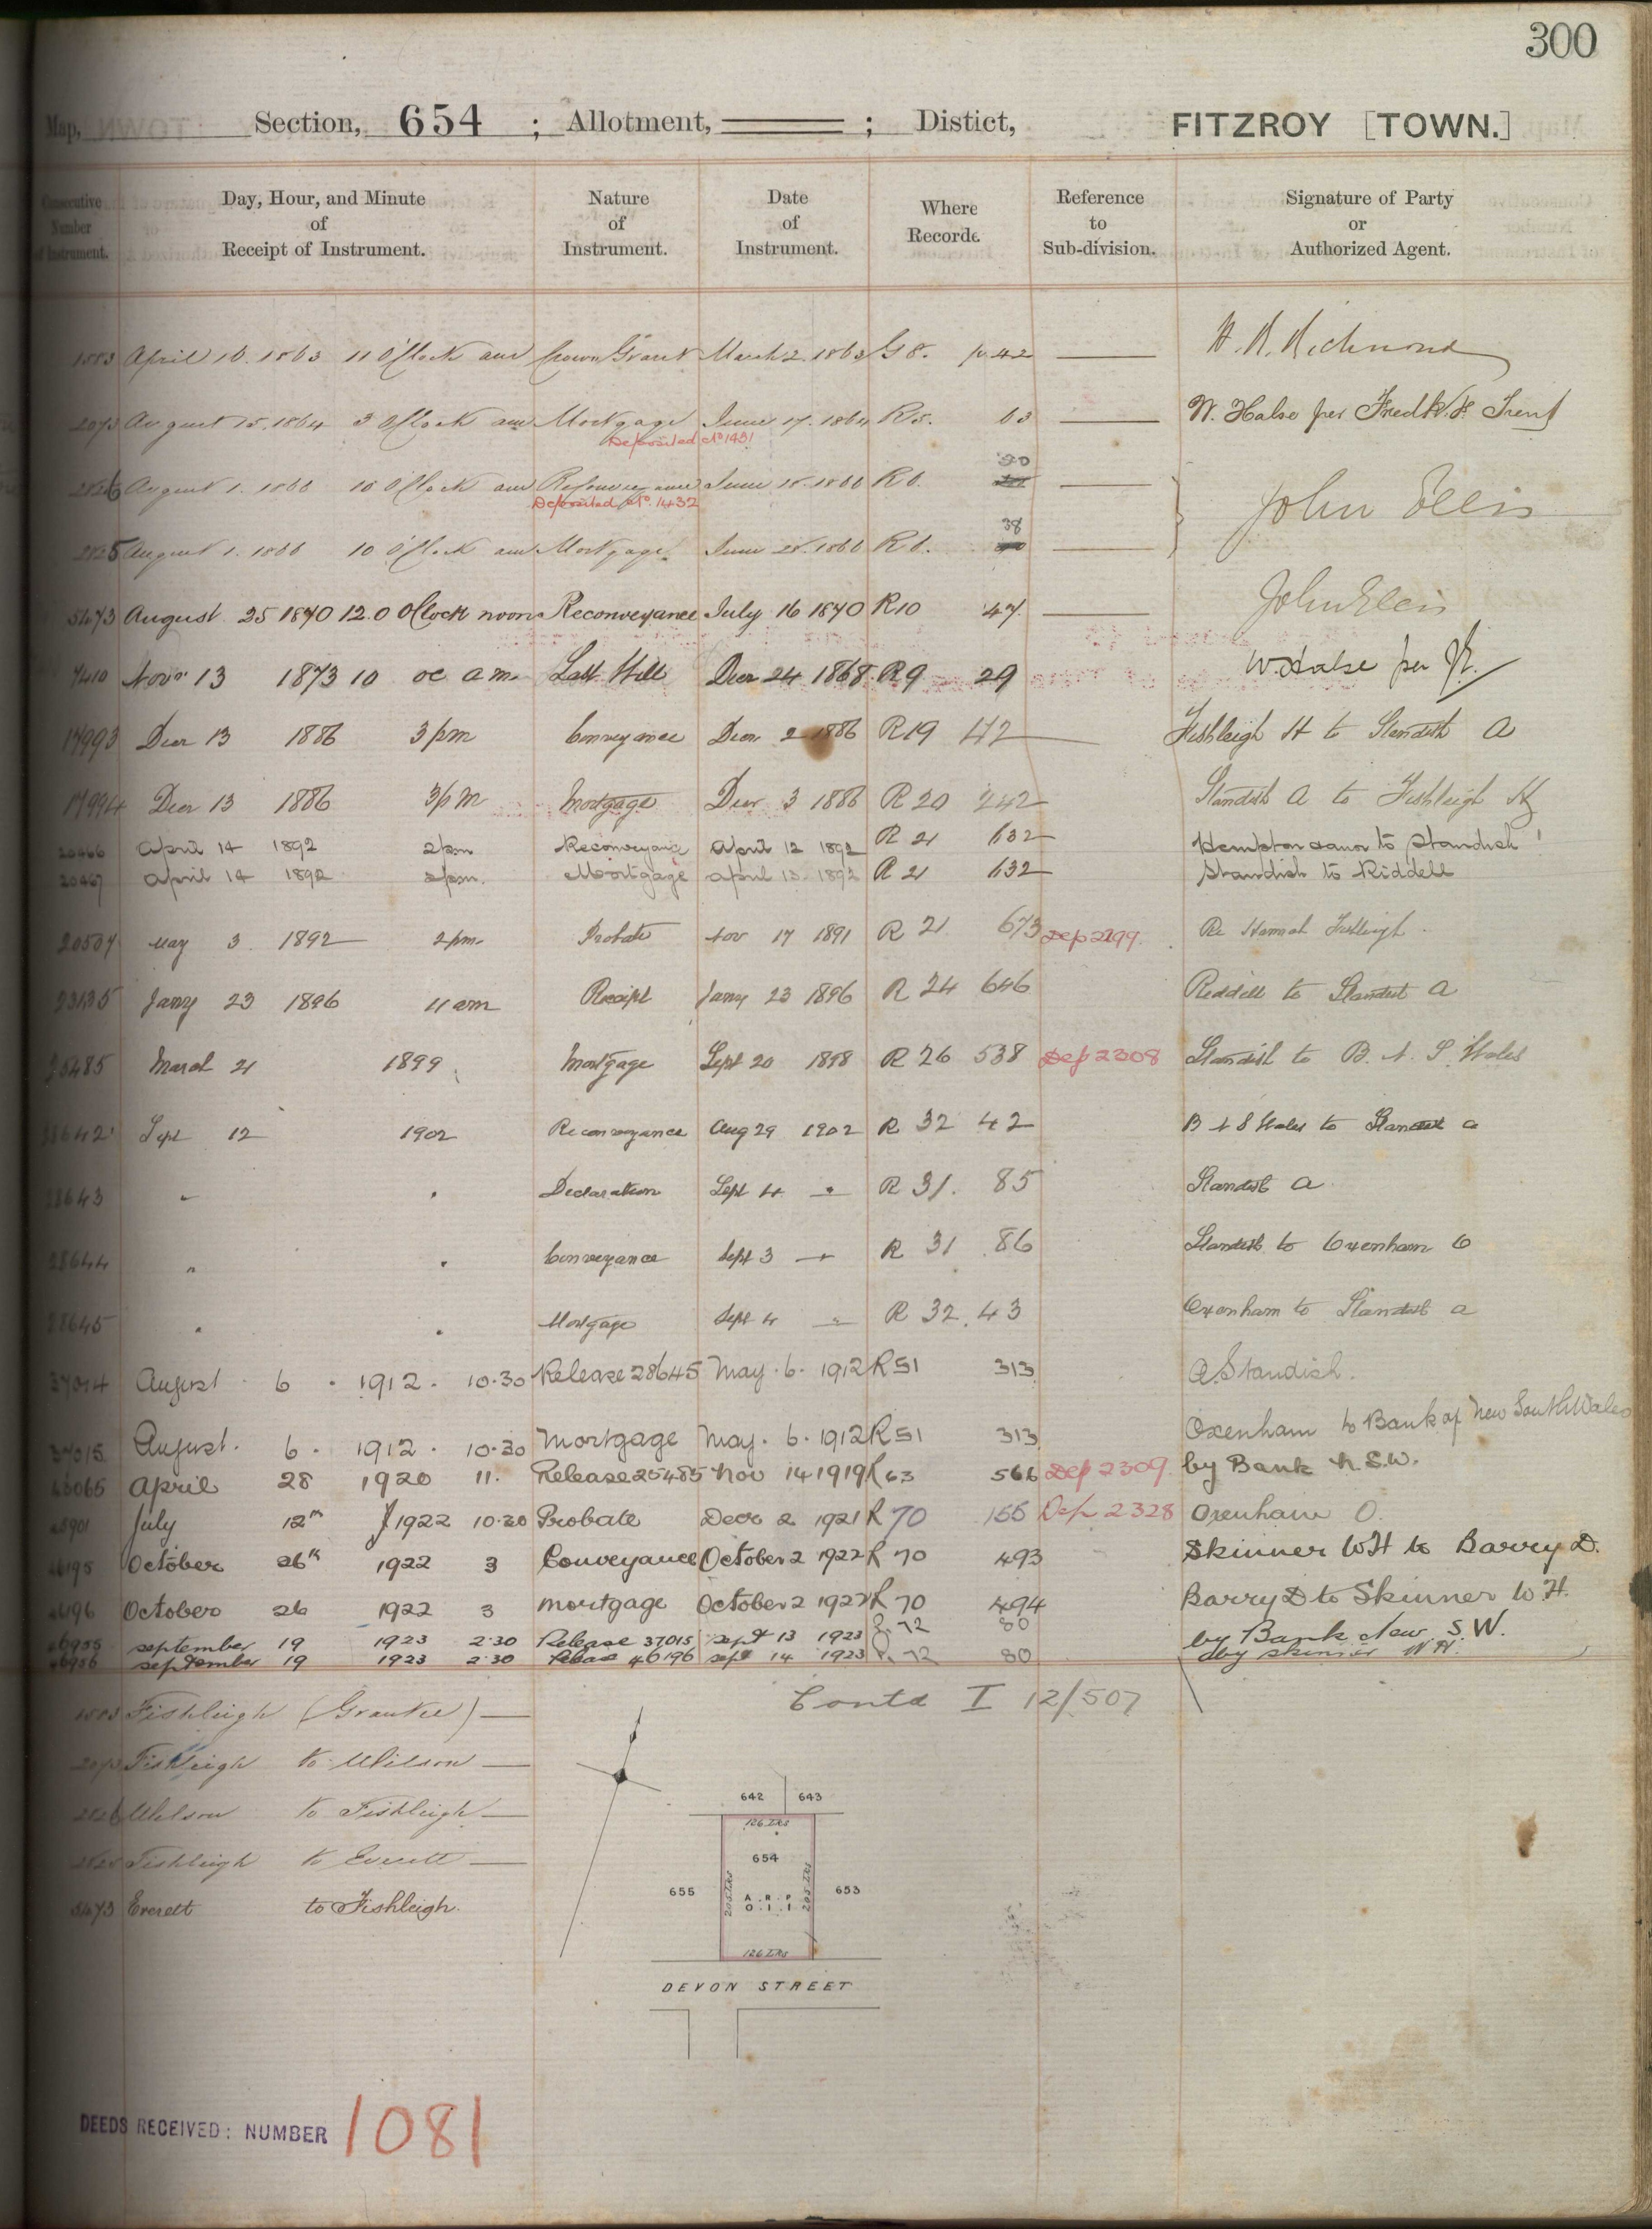 300
Map, Section, 654 ; Allotment, ; Distict, FITZROY [TOWN.]
Consecutive Number of Instrument. Day, Hour, and Minute of Receipt of Instrument. Nature of Instrument. Date of Instrument. Where Recorded. Reference to Sub-division. Signature of Party or Authorized Agent.
1583 April 16. 1863 11 O'Clock am Crown Grant March 2. 1863 G 8. p. 42 H. R. Richmond
2073 August 15. 1864 3 O'Clock am Mortgage June 17. 1864 R 5. 63 W. Halse per Fredk.
Deposited No 1431
2826 August 1. 1866 10 O'Clock am Reconveyance June 18. 1866 R 6. 30 John Ellis
Deposited No. 1432
2825 August 1. 1866 10 O'Clock am Mortgage June 28. 1866 R 6. 38
5473 August 25 1870 12.0 O'Clock noon Reconveyance July 16 1870 R10 47. John Ellis
7410 Novr 13 1873 10 oc am. Last Will Decr 24 1868 R 9 29 W. Halse per
17993 Decr 13 1886 3 pm Conveyance Decr 2 1886 R 19 472 Fishleigh H to Standish A
17994 Decr 13 1886 3 pm Mortgage Decr 3 1886 R 20 242 Standish A to Fishleigh H
20466 April 14 1892 2pm Reconveyance April 12 1892 R 21 632 to Standish
20467 April 14 1892 2pm. Mortgage April 13 1892 R 21 632 Standish to Riddell
20507 May 3 1892 2pm. Probate Nov 17 1891 R 21 673 Dep 2199. Re Hannah Fishleigh.
23135 Jany 23 1896 11 am Receipt Jany 23 1896 R 24 646 Riddell to Standish A
25485 March 21 1899 Mortgage Sept 20 1898 R 26 538 Dep 2308 Standish to B. N. S. Wales
28642 Sept 12 1902 Reconveyance Aug 29 1902 R 32 42 B N S Wales to Standish A
28643 " " Declaration Sept 4 " R 31. 85 Standish A
28644 " " Conveyance Sept 3 " R 31 86 Standish to Oxenham O
28645 " " Mortgage Sept 4 " R 32. 43 Oxenham to Standish A
37014 August 6 1912. 10.30 Release 28645 May. 6. 1912 R 51 313 A. Standish.
37015 August. 6. 1912. 10.30 Mortgage May. 6. 1912 R 51 313 Oxenham to Bank of New South Wales
April 28 1920 11. Release 25485 Nov 14 1919 R 63 566 Dep 2309 by Bank N.S.W.
July 12th 1922 10.30 Probate Decr 2 1921 R 70 155 Dep 2328 Oxenham O.
46195 October 26th 1922 3 Conveyance October 2 1922 R 70 493 Skinner W H to Barry D.
46196 October 26 1922 3 Mortgage October 2 1922 R 70 494 Barry D to Skinner W. H.
46955 September 19 1923 2.30 Release 37015 Sept 13 1923 R. 72 80 by Bank New S. W.
46956 September 19 1923 2.30 Release 46196 Sept 14 1923 R. 72 80 by Skinner W H.
Contd I 12/507
1583 Fishleigh (Grantee)
2073 Fishleigh to Wilson
2826 Wilson to Fishleigh
2825 Fishleigh to Everett
5473 Everett to Fishleigh.
642 643
126 Lks
654
655 653
205 Lks 205 Lks
A. R. P
0. 1. 1
126 Lks
DEVON STREET
DEEDS RECEIVED: NUMBER 1081